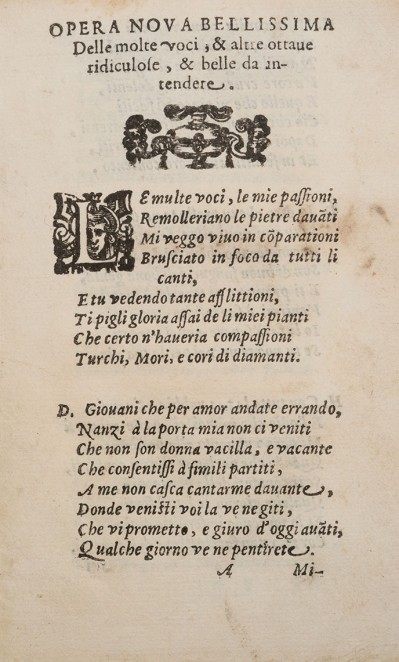 OPERA NOVA BELLISSIMA
Delle molte voci, & altre ottaue
ridiculose, & belle da in-
tendere.
LE multe voci, le mie passioni,
Remolleriano le pietre dauāti
Mi veggo viuo in cōparationi
Brusciato in foco da tutti li
canti,
E tu vedendo tante afflittioni,
Ti pigli gloria assai de li miei pianti
Che certo n'haueria compassioni
Turchi, Mori, e cori di diamanti.
D. Giouani che per amor andate errando,
Nanzi à la porta mia non ci veniti
Che non son donna vacilla, e vacante
Che consentissi à simili partiti,
A me non casca cantarme dauante,
Donde venisti voi la ve ne giti,
Che vi prometto, e giuro d'oggi auāti,
Qualche giorno ve ne pentirete.
A Mi-